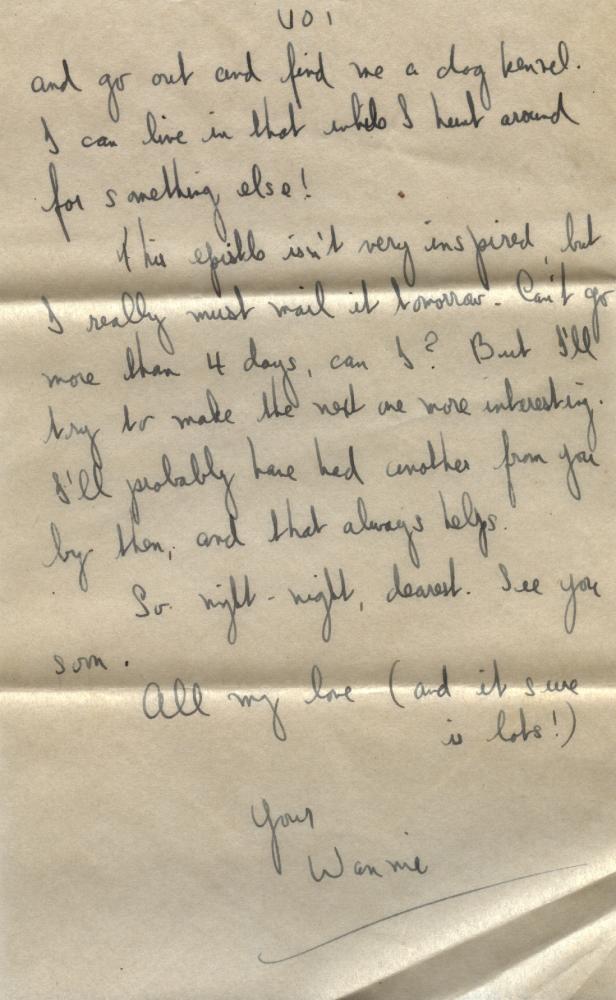 and go out and find me a dog kennel.
I can live in that while I hunt around
for something else!
This epistle isn't very inspired, but
I really must mail it tomorrow. Can't go
more than 4 days, can I? But I'll
try to make the next one more interesting.
I'll probably have had another from you
by then, and that always helps.
So night-night, dearest. See you
soon.
All my love (and it sure
is lots!)
Your
Wannie